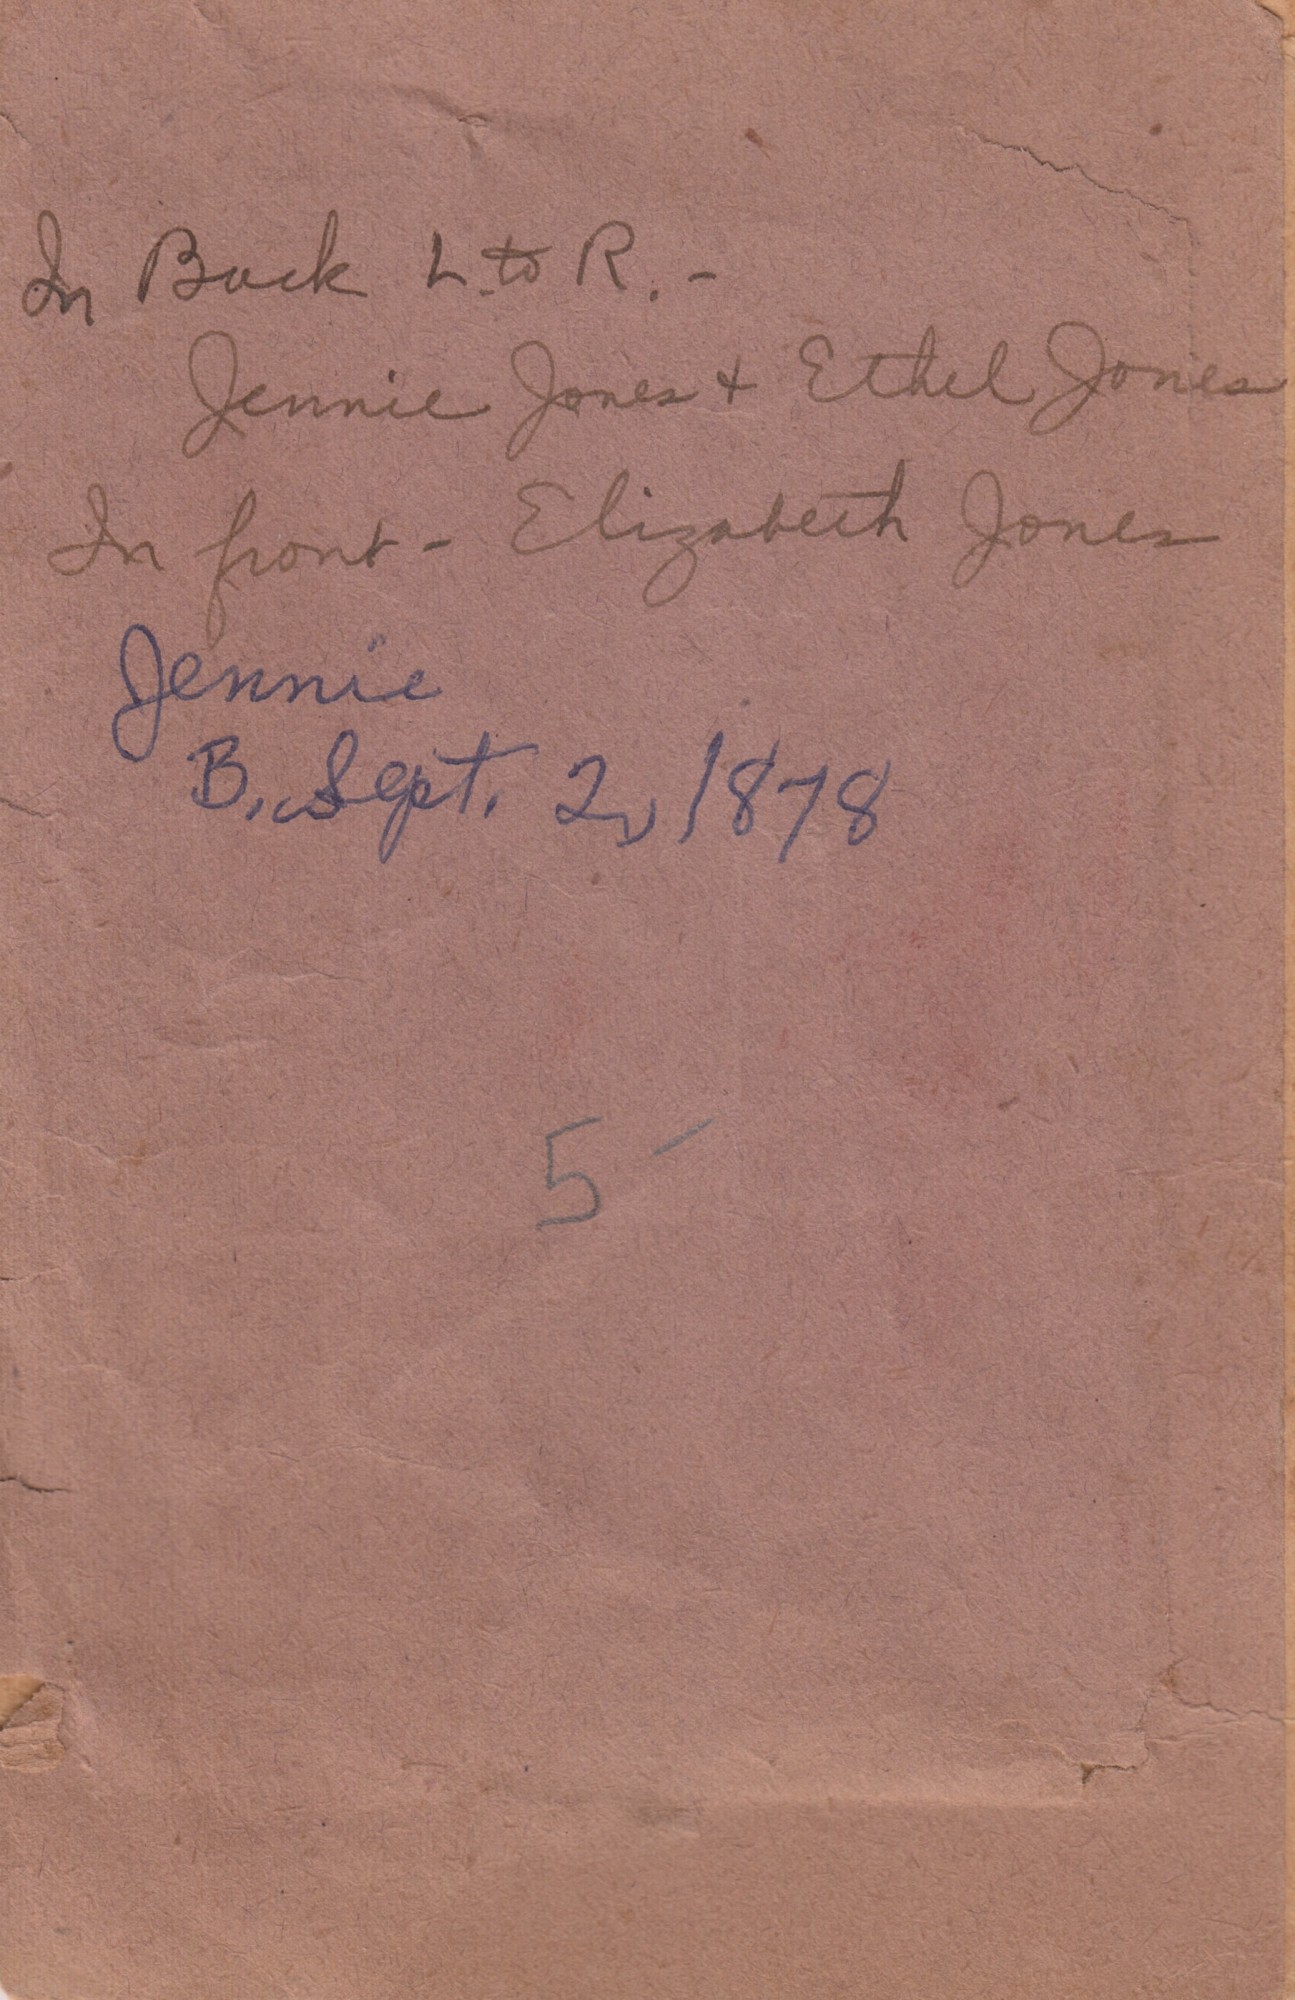 In Back L. to R. -
Jennie Jones + Ethel Jones
In front - Elizabeth Jones
Jennie
B. Sept. 2, 1878
5 -